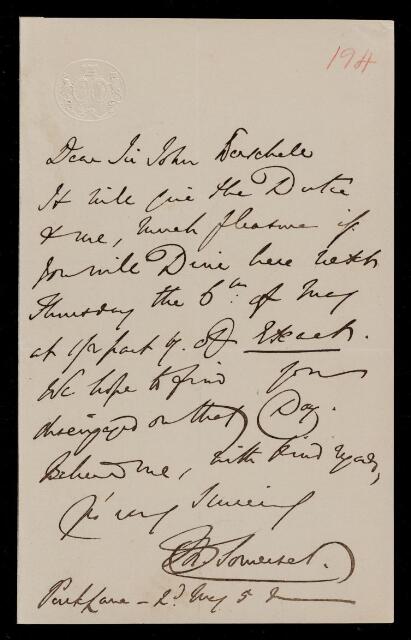 194
Dear Sir John Herschell
It will give the Duke
& me, much pleasure if
you will Dine here next
Thursday the 6th of May
at 1/2 past 7. of Exact.
We hope to find you
disengaged on that Day.
Believe me, with kind regards,
yrs very sincerely
Somerset.
Park Lane – 2d May 5